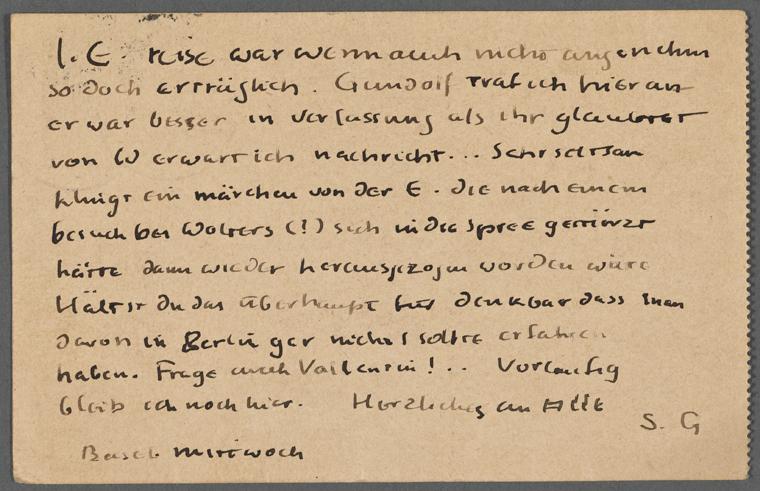 l. E. reise war wenn auch nicht angenehm
so doch erträglich. Gundolf traf ich hier an
er war besser in verfassung als ihr glaubtet
von W erwart ich nachricht... Sehr seltsam
klingt ein märchen von der E. die nach einem
besuch bei Wolters (!) sich in die Spree gestürzt
hätte dann wieder herausgezogen worden wäre
Hältst du das überhaupt für denkbar dass man
davon in Berlin gar nichts sollte erfahren
haben. Frage auch Vallentin!.. Vorläufig
bleib ich noch hier. Herzliches an Alle
S. G
Basel Mittwoch